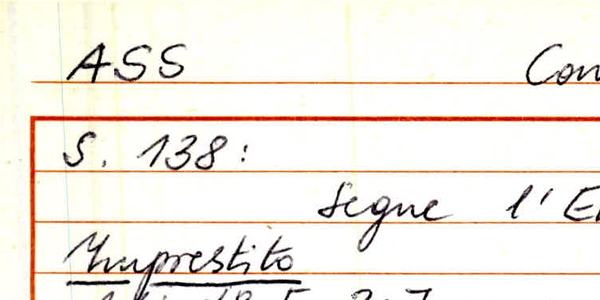 ASS
S. 138:
segue l'
Imprestito